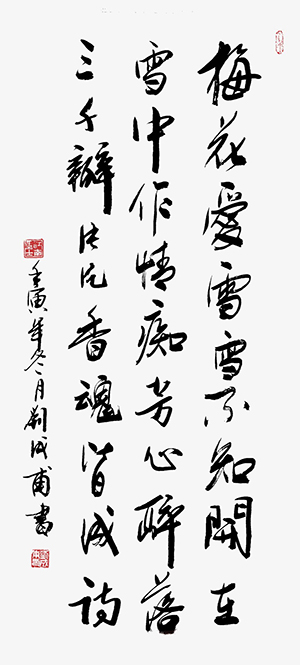 梅花爱雪雪不知開在
雪中作情痴芳心醉落
三千瓣片片香魂皆成詩
壬寅年冬月刘成甫書